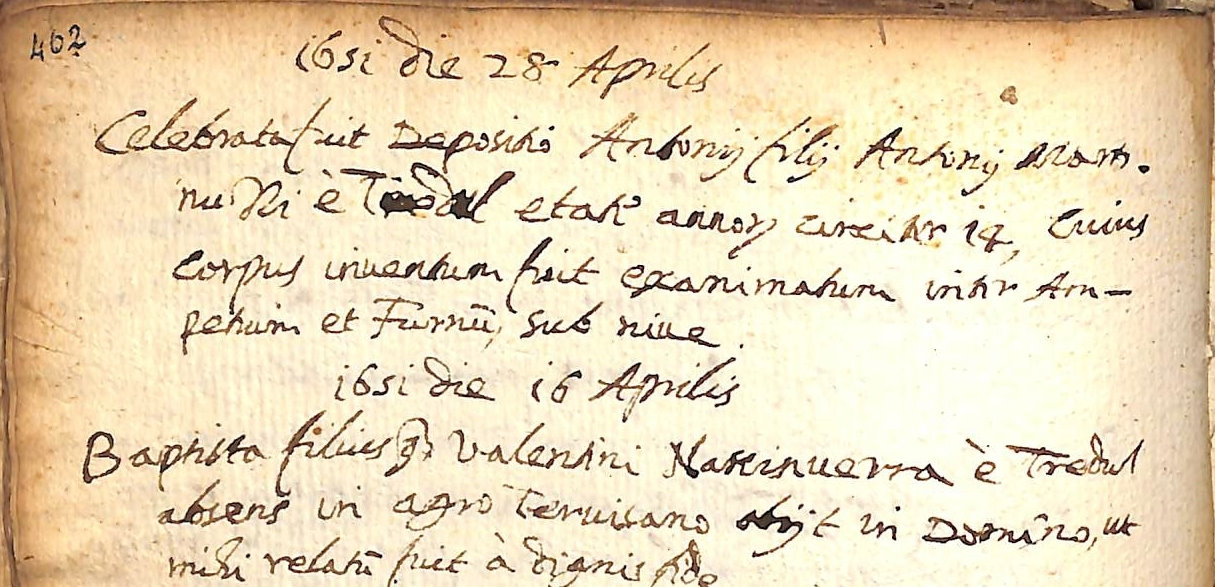 462
1651 die 28 Aprilis
Celebrata fuit Depositio Antonij filij Antonij Mart-
nuzzi è etatis annorum circiter 14, Cuius
Corpus inventum fuit exanimatum inter Am-
petium et Furnũ, sub nive.
1651 die 16 Aprilis
Baptista filius q. Valentini è Tredul
absens in agro Tervisano obijt in Domĩno, ut
mihi relatũ fuit à dignis fide